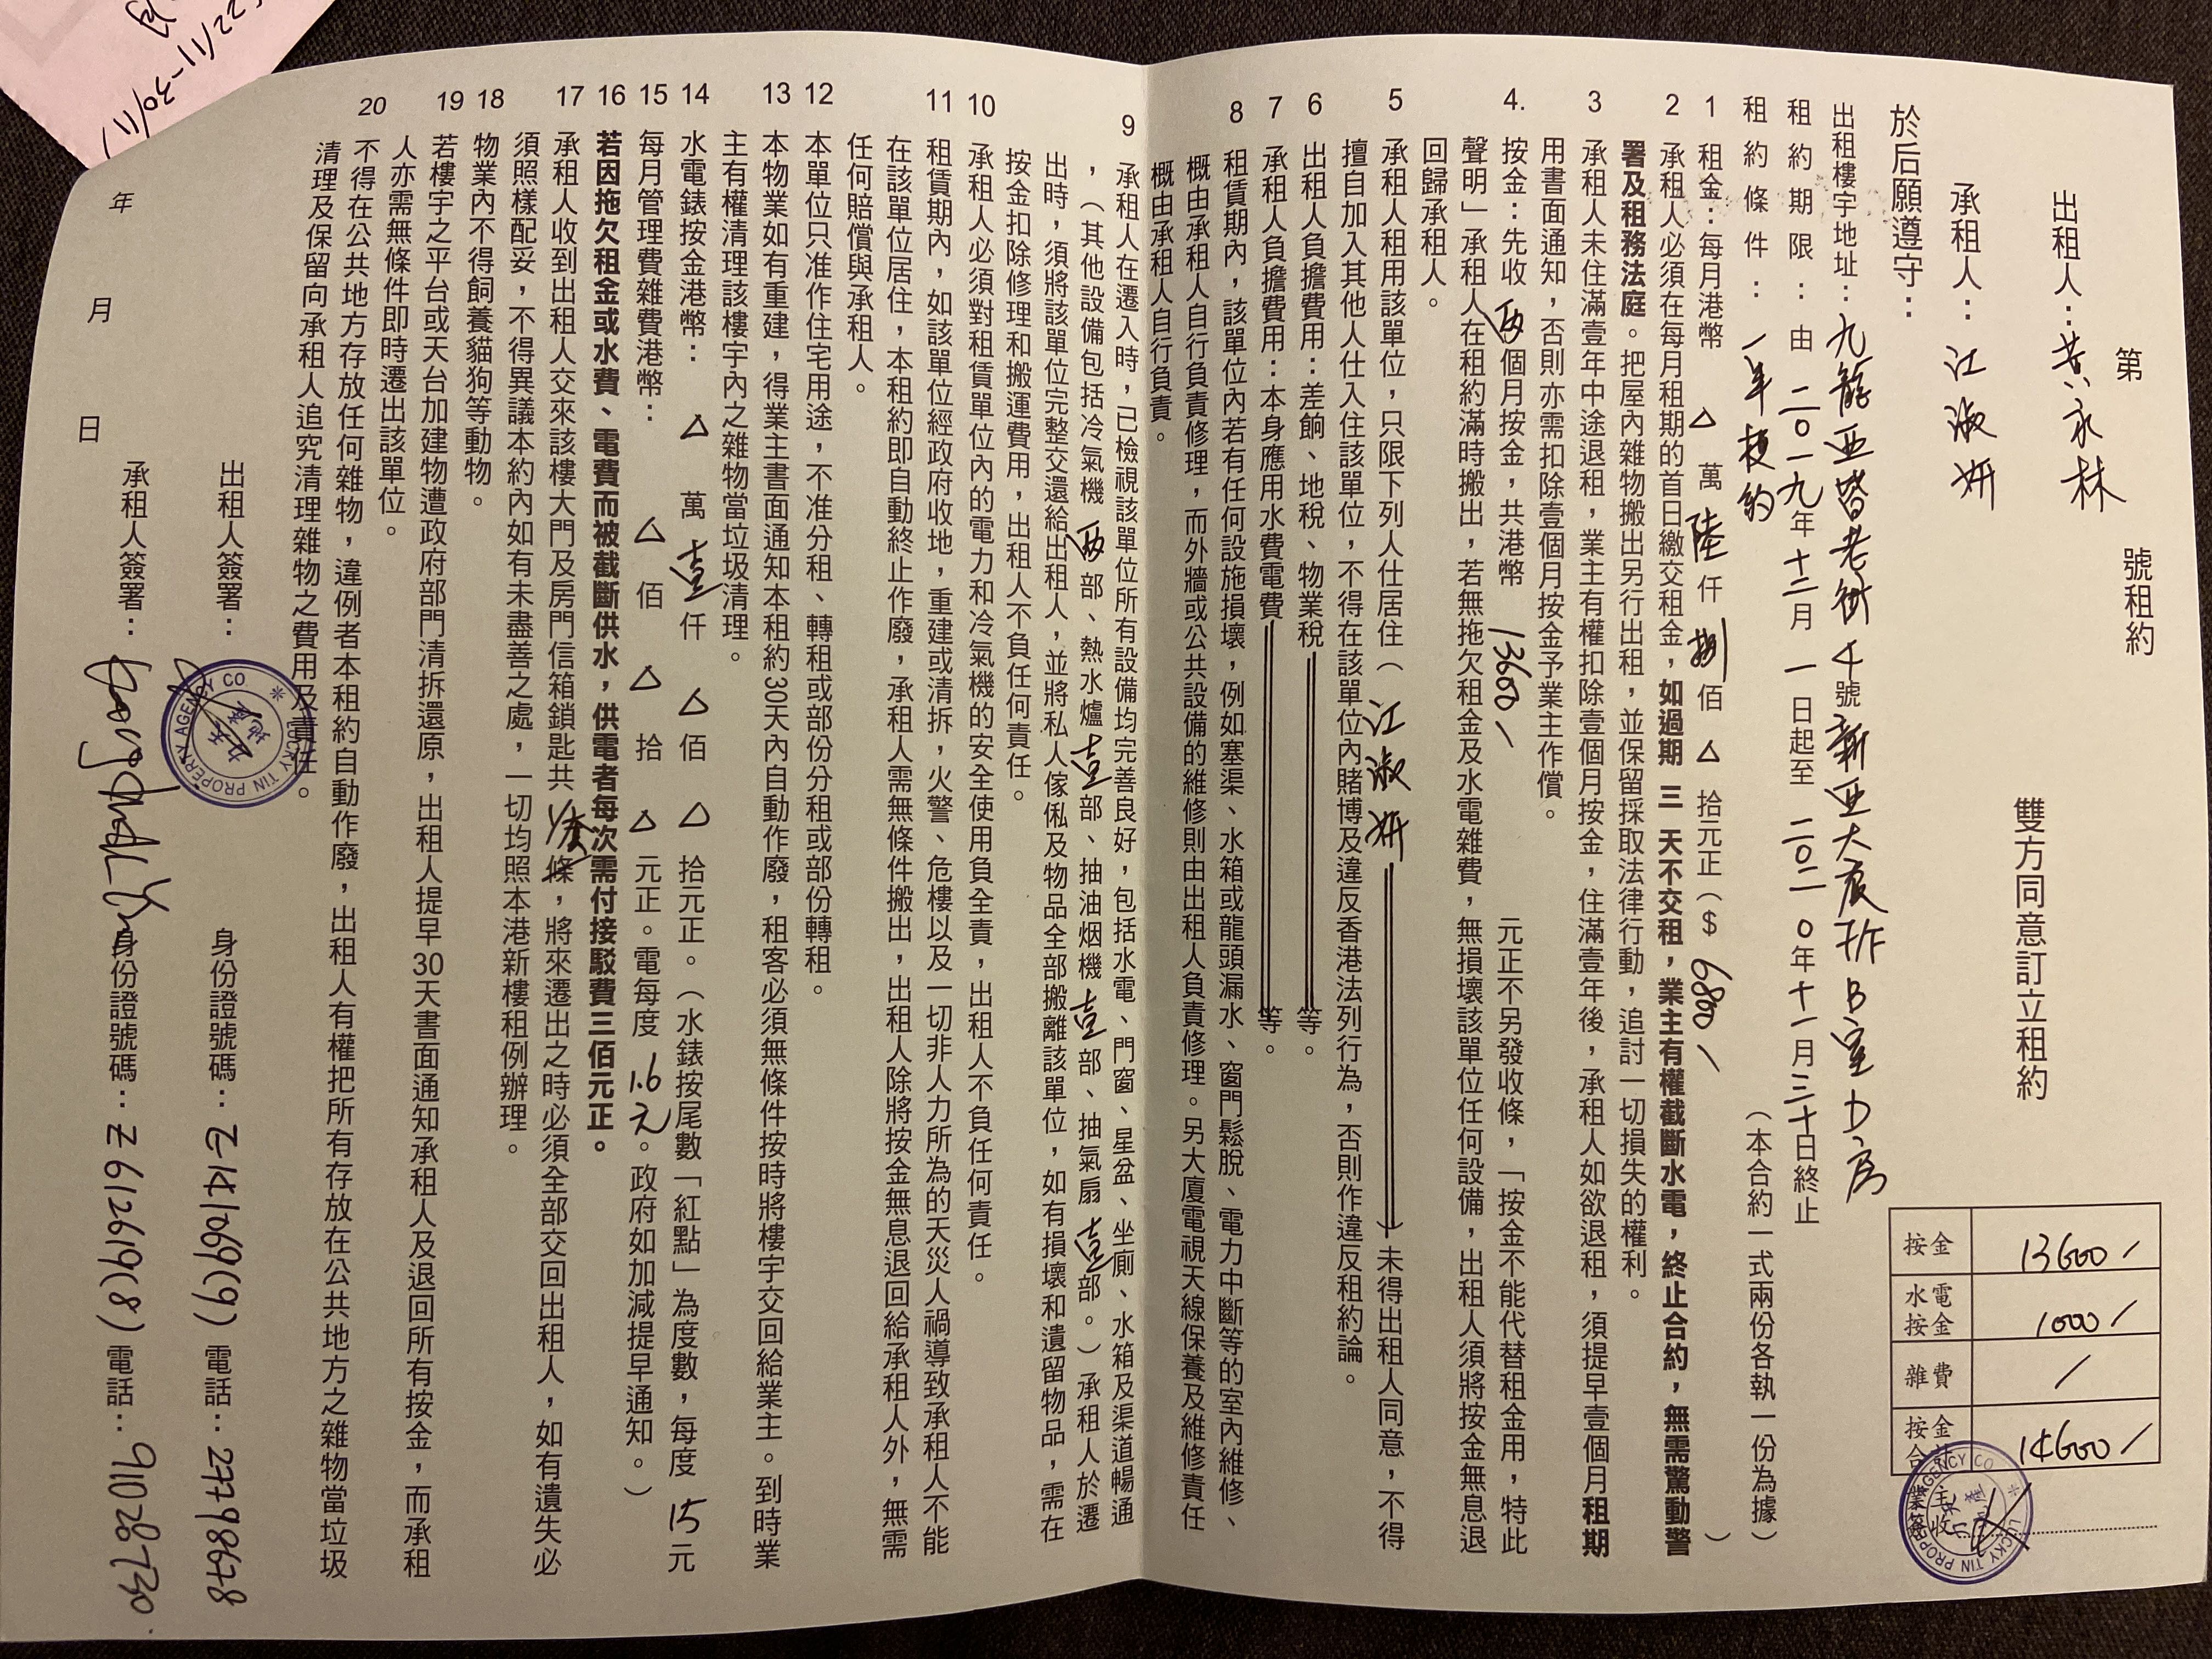 第 號租約
出租人：黃永林
承租人：江淑妍 雙方同意訂立租約
於后願遵守：
出租樓宇地址：九龍亞皆老街4號新亞大廈 B室D房
租約期限：由二〇一九年十二月一日起至二〇二〇年十一月三十日終止
租約條件：一年梗約 （本合約一式兩份各執一份為據）
1 租金：每月港幣 △ 萬 陸 仟 捌 佰 △ 拾元正（$ 6800/ ）
2 承租人必須在每月租期的首日繳交租金，如過期 三 天不交租，業主有權截斷水電，終止合約，無需驚動警
署及租務法庭。把屋內雜物搬出另行出租，並保留採取法律行動，追討一切損失的權利。
3 承租人未住滿壹年中途退租，業主有權扣除壹個月按金，住滿壹年後，承租人如欲退租，須提早壹個月租期
用書面通知，否則亦需扣除壹個月按金予業主作償。
4. 按金：先收 兩 個月按金，共港幣 13600/ 元正不另發收條，「按金不能代替租金用，特此
聲明」承租人在租約滿時搬出，若無拖欠租金及水電雜費，無損壞該單位任何設備，出租人須將按金無息退
回歸承租人。
5 承租人租用該單位，只限下列人仕居住（江淑妍 ）未得出租人同意，不得
擅自加入其他人仕入住該單位，不得在該單位內賭博及違反香港法列行為，否則作違反租約論。
6 出租人負擔費用：差餉、地稅、物業稅 等。
7 承租人負擔費用：本身應用水費電費 等。
8 租賃期內，該單位內若有任何設施損壞，例如塞渠、水箱或龍頭漏水、窗門鬆脫、電力中斷等的室內維修、
概由承租人自行負責修理，而外牆或公共設備的維修則由出租人負責修理。另大廈電視天線保養及維修責任
概由承租人自行負責。
9 承租人在遷入時，已檢視該單位所有設備均完善良好，包括水電、門窗、星盆、坐廁、水箱及渠道暢通
，（其他設備包括冷氣機 兩 部、熱水爐 壹 部、抽油烟機 壹 部、抽氣扇 壹 部。）承租人於遷
出時，須將該單位完整交還給出租人，並將私人傢俬及物品全部搬離該單位，如有損壞和遺留物品，需在
按金扣除修理和搬運費用，出租人不負任何責任。
10 承租人必須對租賃單位內的電力和冷氣機的安全使用負全責，出租人不負任何責任。
11 租賃期內，如該單位經政府收地，重建或清拆，火警、危樓以及一切非人力所為的天災人禍導致承租人不能
在該單位居住，本租約即自動終止作廢，承租人需無條件搬出，出租人除將按金無息退回給承租人外，無需
任何賠償與承租人。
12 本單位只准作住宅用途，不准分租、轉租或部份分租或部份轉租。
13 本物業如有重建，得業主書面通知本租約30天內自動作廢，租客必須無條件按時將樓宇交回給業主。到時業
主有權清理該樓宇內之雜物當垃圾清理。
14 水電錶按金港幣： △ 萬 壹 仟 △ 佰 △ 拾元正。（水錶按尾數「紅點」為度數，每度 15 元
15 每月管理費雜費港幣： △ 佰 △ 拾 △ 元正。電每度 1.6元。政府如加減提早通知。）
16 若因拖欠租金或水費、電費而被截斷供水，供電者每次需付接駁費三佰元正。
17 承租人收到出租人交來該樓大門及房門信箱鎖匙共 1套 條，將來遷出之時必須全部交回出租人，如有遺失必
須照樣配妥，不得異議本約內如有未盡善之處，一切均照本港新樓租例辦理。
18 物業內不得飼養貓狗等動物。
19 若樓宇之平台或天台加建物遭政府部門清拆還原，出租人提早30天書面通知承租人及退回所有按金，而承租
人亦需無條件即時遷出該單位。
20 不得在公共地方存放任何雜物，違例者本租約自動作廢，出租人有權把所有存放在公共地方之雜物當垃圾
清理及保留向承租人追究清理雜物之費用及責任。
出租人簽署： 身份證號碼： 電話：27798678
承租人簽署： 身份證號碼：Z612619(8) 電話：91028730
年 月 日
按金 13600/
水電按金 1000/
雜費 /
按金合計 14600/
LUCKY TIN PROPERTY AGENCY CO
LUCKY TIN PROPERTY AGENCY CO
22/11-30/11)